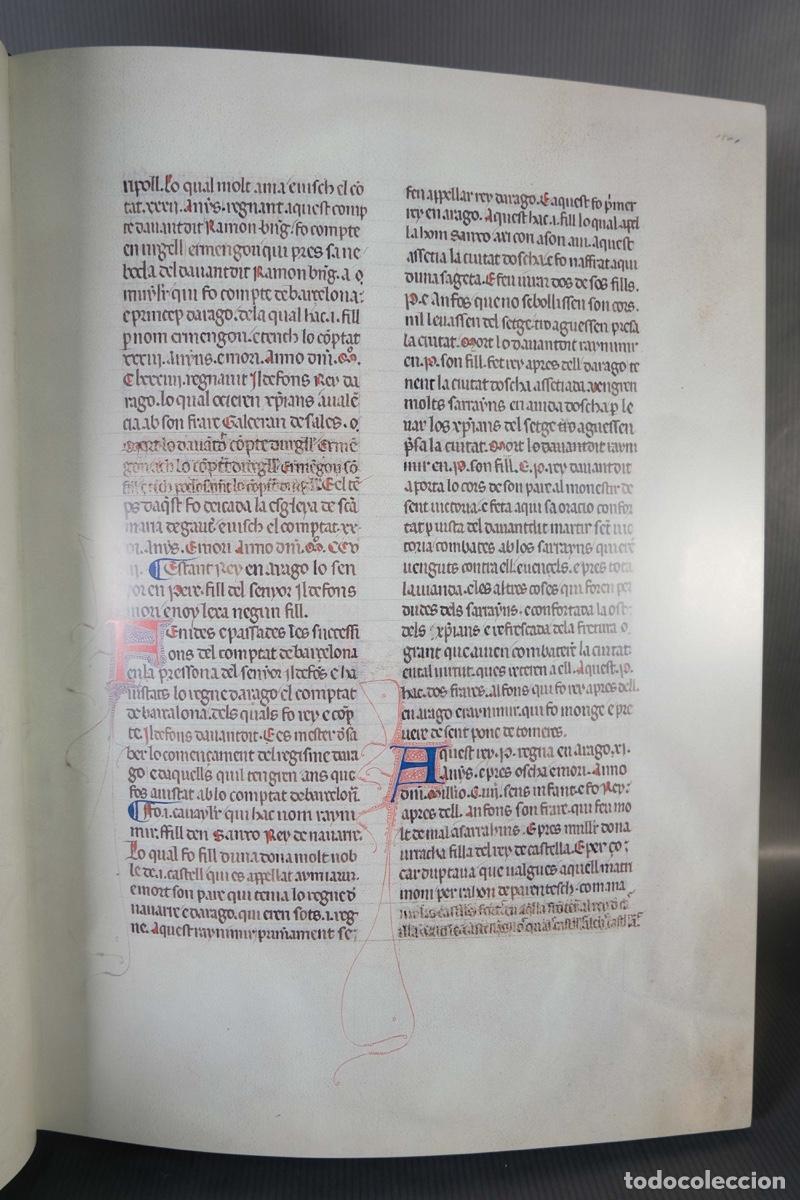 ripoll. Lo qual molt ama e visch el cō
tat .xxxii. Anẏs. regnant aquest comp
te dauantdit Ramon brīg̃. fo compte
en urgell ermengon qui pres sa ne
boda del dauantdit Ramon brīg̃.
qui fo compte de barcelona.
e princep darago. dela qual hac .i. fill
per nom ermengon. e tench lo cōptat
xxxiii. Anẏns. e mori. Anno dm̄. M°.
Clxxxiii. regnant Ildefons Rey da
rago. lo qual xp̄ians a ualē
cia ab son frare Galceran de sales.
Mort lo dauātd̄ cōpte durgll̄ Ermē
gon lo cōptē durgll̄ Ermengon
lo El tē
ps daq̄st fo dedicada la esgleya de scā
maria de e visch el comptat xx
.Anẏs. E mori Anno dm̄. M°. CCV
Estant Rey en arago lo sen
yor en Pere. fill del senyor Ildefons
mori e noy lexa negun fill.
FEnides e passades les successi
ons del comptat de barcelona
en la pressona del senyor Ildefōs e ha
iustats lo regne darago el comptat
de barcalona. dels quals fo rey e cōp
te. Ildefons dauantdit. E es mester d̄ sa
ber lo començament del regisme dara
go e daquells quil tengren ans que
fos aiustat ab lo comptat de barcelon̄.
Fo .i. cauayl̄r qui hac nom raym
mir. ffill den Sanxo Rey de nauarre.
Lo qual fo fill duna dona molt nob
le de .i. castell qui es appellat aymiarin.
e mort son pare qui tenia lo regne d̄
nauarre e darago. qui eren sots .i. reg
ne. Aquest raynimir. primament se
fen appellar rey darago. E aquest fo p̄mer
rey en arago. Aquest hac .i. fill lo qual apel
la hom Sanxo axi con a son aui. Aquest
assetia la ciutat doscha. e fo naffrat aqui
duna sageta. E feu iurar dos de sos fills.
.P. e anfos que no sebollissen son cors.
nil leuassen del setge. tro aguessen presa
la ciutat. Mort lo dauantdit raynimir
en .P. son fill. fet rey apres dell darago te
nent la ciutat doscha assetiada. uengren
molts sarrayns en aiuda doscha p̄ le
uar los xp̄ians del setge tro aguessen
p̄sa la ciutat. Mort lo dauantdit rayni
mir en .P. son fill. E .P. rey dauantdit
aporta lo cors de son pare al monestir de
sent uictoria. e feta aqui sa oratio confor
tat p̄ uista del dauantdit martir sent uic
toria combates ab los sarrayns qui ere
uenguts contra ell. e uencels. e pres tota
la uianda. e les altres coses qui foren per
dudes dels sarrayns. e confortada la ost
dels xp̄ians e refrescada dela fretura
grant que auien combateren la ciutat
en tal uirtut. ques reteren a ell. Aquest .P.
hac .dos frares. alfons qui fo rey apres dell.
en arago e raynimir. qui fo monge e pre
uere de sent ponc de tomeres.
Aquest rey .P. regna en arago .xi.
Anẏs. e pres oscha e mori. Anno
dm̄. Mill̄io. C. uiii. sens infant. e fo Rey.
apres dell. Anfons son frare. qui feu mo
lt de mal a sarrahins. E pres mull̄r dona
urracha filla del rey de castella. E per ço
car duptaua que ualgues aquell matri
moni per rahon de parentesch. comana
los castells forts en aq̄lla frōtera al rey d̄